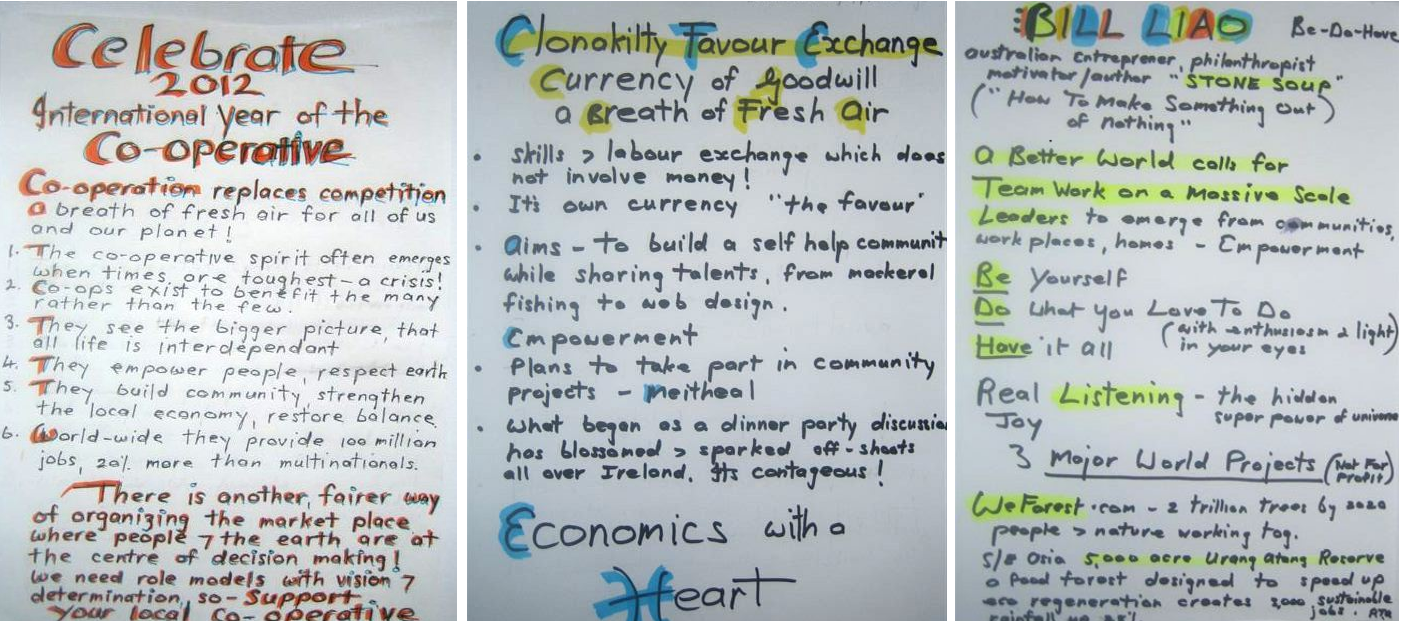 Celebrate
2012
International Year of the
Co-operative
Co-operation replaces competition
a breath of fresh air for all of us
and our planet!
1. The co-operative spirit often emerges
when times, are toughest - a crisis!
2. Co-ops exist to benefit the many
rather than the few.
3. They see the bigger picture, that
all life is interdependant
4. They empower people, respect earth
5. They build community, strengthen
the local economy, restore balance.
6. World-wide they provide 100 million
jobs, 20% more than multinationals.
There is another, fairer way
of organizing the market place
where people 7 the earth are at
the centre of decision making!
We need role models with vision 7
determination, so - Support
your local Co-operative
Clonakilty Favour Exchange
Currency of Goodwill
a Breath of Fresh Air
• Skills > labour exchange which does
not involve money!
• It's own currency "the favour"
• Aims - to build a self help communit
while sharing talents, from mackerel
fishing to web design.
Empowerment
• Plans to take part in community
projects - meitheal
• What began as a dinner party discussion
has blossomed > sparked off-shoots
all over Ireland. Its contageous!
Economics with a
Heart
BILL LIAO Be-Do-Have
australian Entreprener, philanthropist
motivator/author "STONE SOUP"
("How To Make Something Out
of Nothing")
a Better World calls for
Team Work on a Massive Scale
Leaders to emerge from communities,
work places, homes - Empowerment
Be Yourself
Do What you Love To Do
(with enthusiasm a light)
Have it all in your eyes
Real Listening - the hidden
super power of universe
Joy
3 Major World Projects (Not For
Profit)
WeForest.com - 2 trillion trees by 2020
people > nature working tog.
S/E Asia 5,000 acre Urang Atang Reserve
a food forest designed to speed up
eco regeneration creates 3,000 sustainable
jobs.
rainfall up